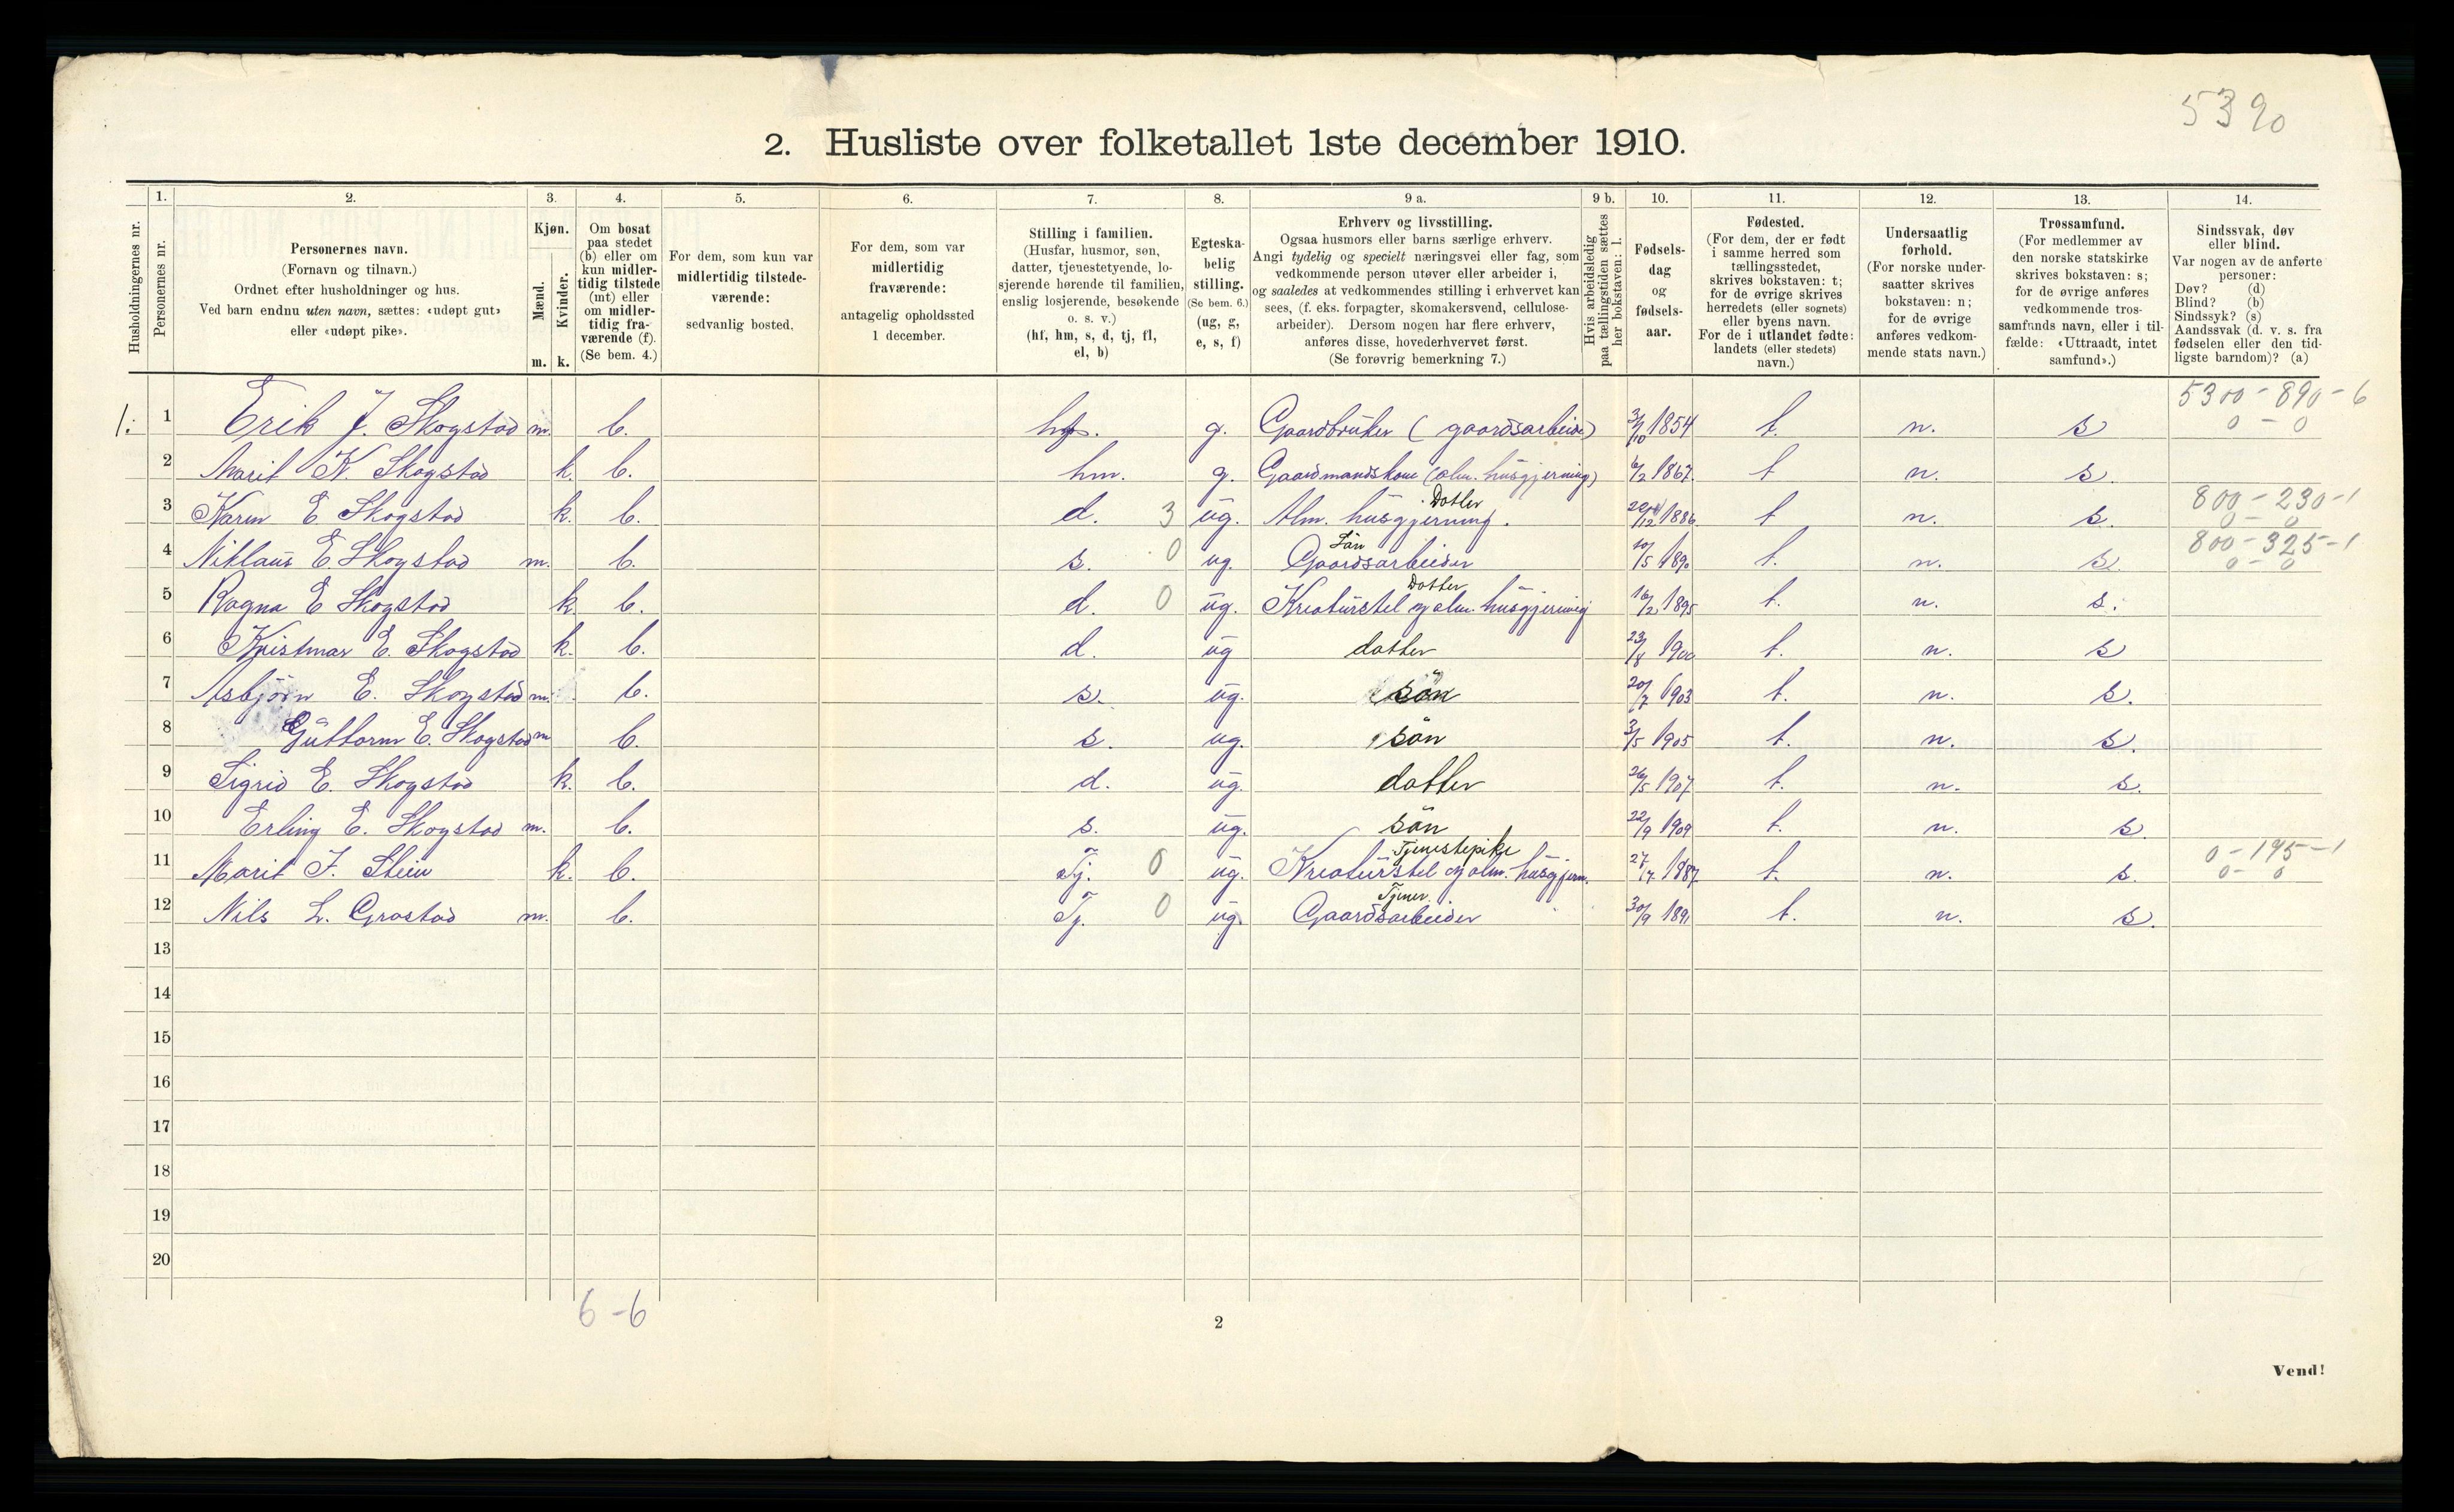 5390
2. Husliste over folketallet 1ste december 1910.
Husholdningernes nr.
1.
Personernes nr.
2.
Personernes navn.
(Fornavn og tilnavn.)
Ordnet efter husholdninger og hus.
Ved barn endnu uten navn, sættes: «udøpt gut»
eller «udøpt pike».
3.
Kjøn.
Mænd.
Kvinder.
m. k.
4.
Om bosat
paa stedet
(b) eller om
kun midler-
tidig tilstede
(mt) eller
om midler-
tidig fra-
værende (f).
(Se bem. 4.)
5.
For dem, som kun var
midlertidig tilstede-
værende:
sedvanlig bosted.
6.
For dem, som var
midlertidig
fraværende:
antagelig opholdssted
1 december.
7.
Stilling i familien.
(Husfar, husmor, søn,
datter, tjenestetyende, lo-
sjerende hørende til familien,
enslig losjerende, besøkende
o. s. v.)
(hf, hm, s, d, tj, fl,
el, b)
8.
Egteska-
belig
stilling.
(Se bem. 6.)
(ug, g,
e, s, f)
9 a.
Erhverv og livsstilling.
Ogsaa husmors eller barns særlige erhverv.
Angi tydelig og specielt næringsvei eller fag, som
vedkommende person utøver eller arbeider i,
og saaledes at vedkommendes stilling i erhvervet kan
sees, (f. eks. forpagter, skomakersvend, cellulose-
arbeider). Dersom nogen har flere erhverv,
anføres disse, hovederhvervet først.
(Se forøvrig bemerkning 7.)
9 b.
Hvis arbeidsledig
paa tællingstiden sættes
her bokstaven: l.
10.
Fødsels-
dag
og
fødsels-
aar.
11.
Fødested.
(For dem, der er født
i samme herred som
tællingsstedet,
skrives bokstaven: t;
for de øvrige skrives
herredets (eller sognets)
eller byens navn.
For de i utlandet fødte:
landets (eller stedets)
navn.)
12.
Undersaatlig
forhold.
(For norske under-
saatter skrives
bokstaven: n;
for de øvrige
anføres vedkom-
mende stats navn.)
13.
Trossamfund.
(For medlemmer av
den norske statskirke
skrives bokstaven: s;
for de øvrige anføres
vedkommende tros-
samfunds navn, eller i til-
fælde: «Uttraadt, intet
samfund».)
14.
Sindssvak, døv
eller blind.
Var nogen av de anførte
personer:
Døv? (d)
Blind? (b)
Sindssyk? (s)
Aandssvak (d. v. s. fra
fødselen eller den tid-
ligste barndom)? (a)
5300-890-6
1. 1 Erik J. Skogstad m. b. hf. g. Gaardbruker (gaardsarbeide) 3/10 1854 t. n. s 0-0
2 Marit K. Skogstad k. b. hm. g. Gaardmandskone (alm. husgjerning) 6/2 1867. t n. s.
Datter 800-230-1
3 Karen E Skogstad k. b. d. 3 ug. Alm. husgjerning. 1886 t n. s. 0-0
Sön 800-325-1
4 Niklaus E. Skogstad m. b. s. 0 ug. Gaardsarbeider 10/5 1890 t. n. s. 0-0
Datter
5 Ragna E Skogstad k. b. d. 0 ug. Kreaturstel og alm. husgjerning 16/2 1895 t. n. s.
6 Kristmar E. Skogstad k. b. d. ug datter 23/8 1900 t. n. s
7 Asbjörn E. Skogstad m. b. s. ug. sön 20/7 1903 t. n. s.
8 Guttorm E. Skogstad m b. s. ug. sön 3/5 1905 t. n. s.
9 Sigrid E. Skogstad k. b. d. ug. datter 26/5 1907 t. n. s.
10 Erling E. Skogstad m. b. s. ug. sön 22/9 1909 t. n. s.
Tjenestepike 0-195-1
11 Marit J. Stein k. b. Tj. 0 ug. Kreaturstel og alm. husgjern. 27/7 1887 t. n. s. 0-0
Tjener
12 Nils L. Grostad m. b. Tj. 0 ug. Gaardsarbeider 30/9 1891 t. n. s.
13
14
15
16
17
18
19
20
6-6
2
Vend!